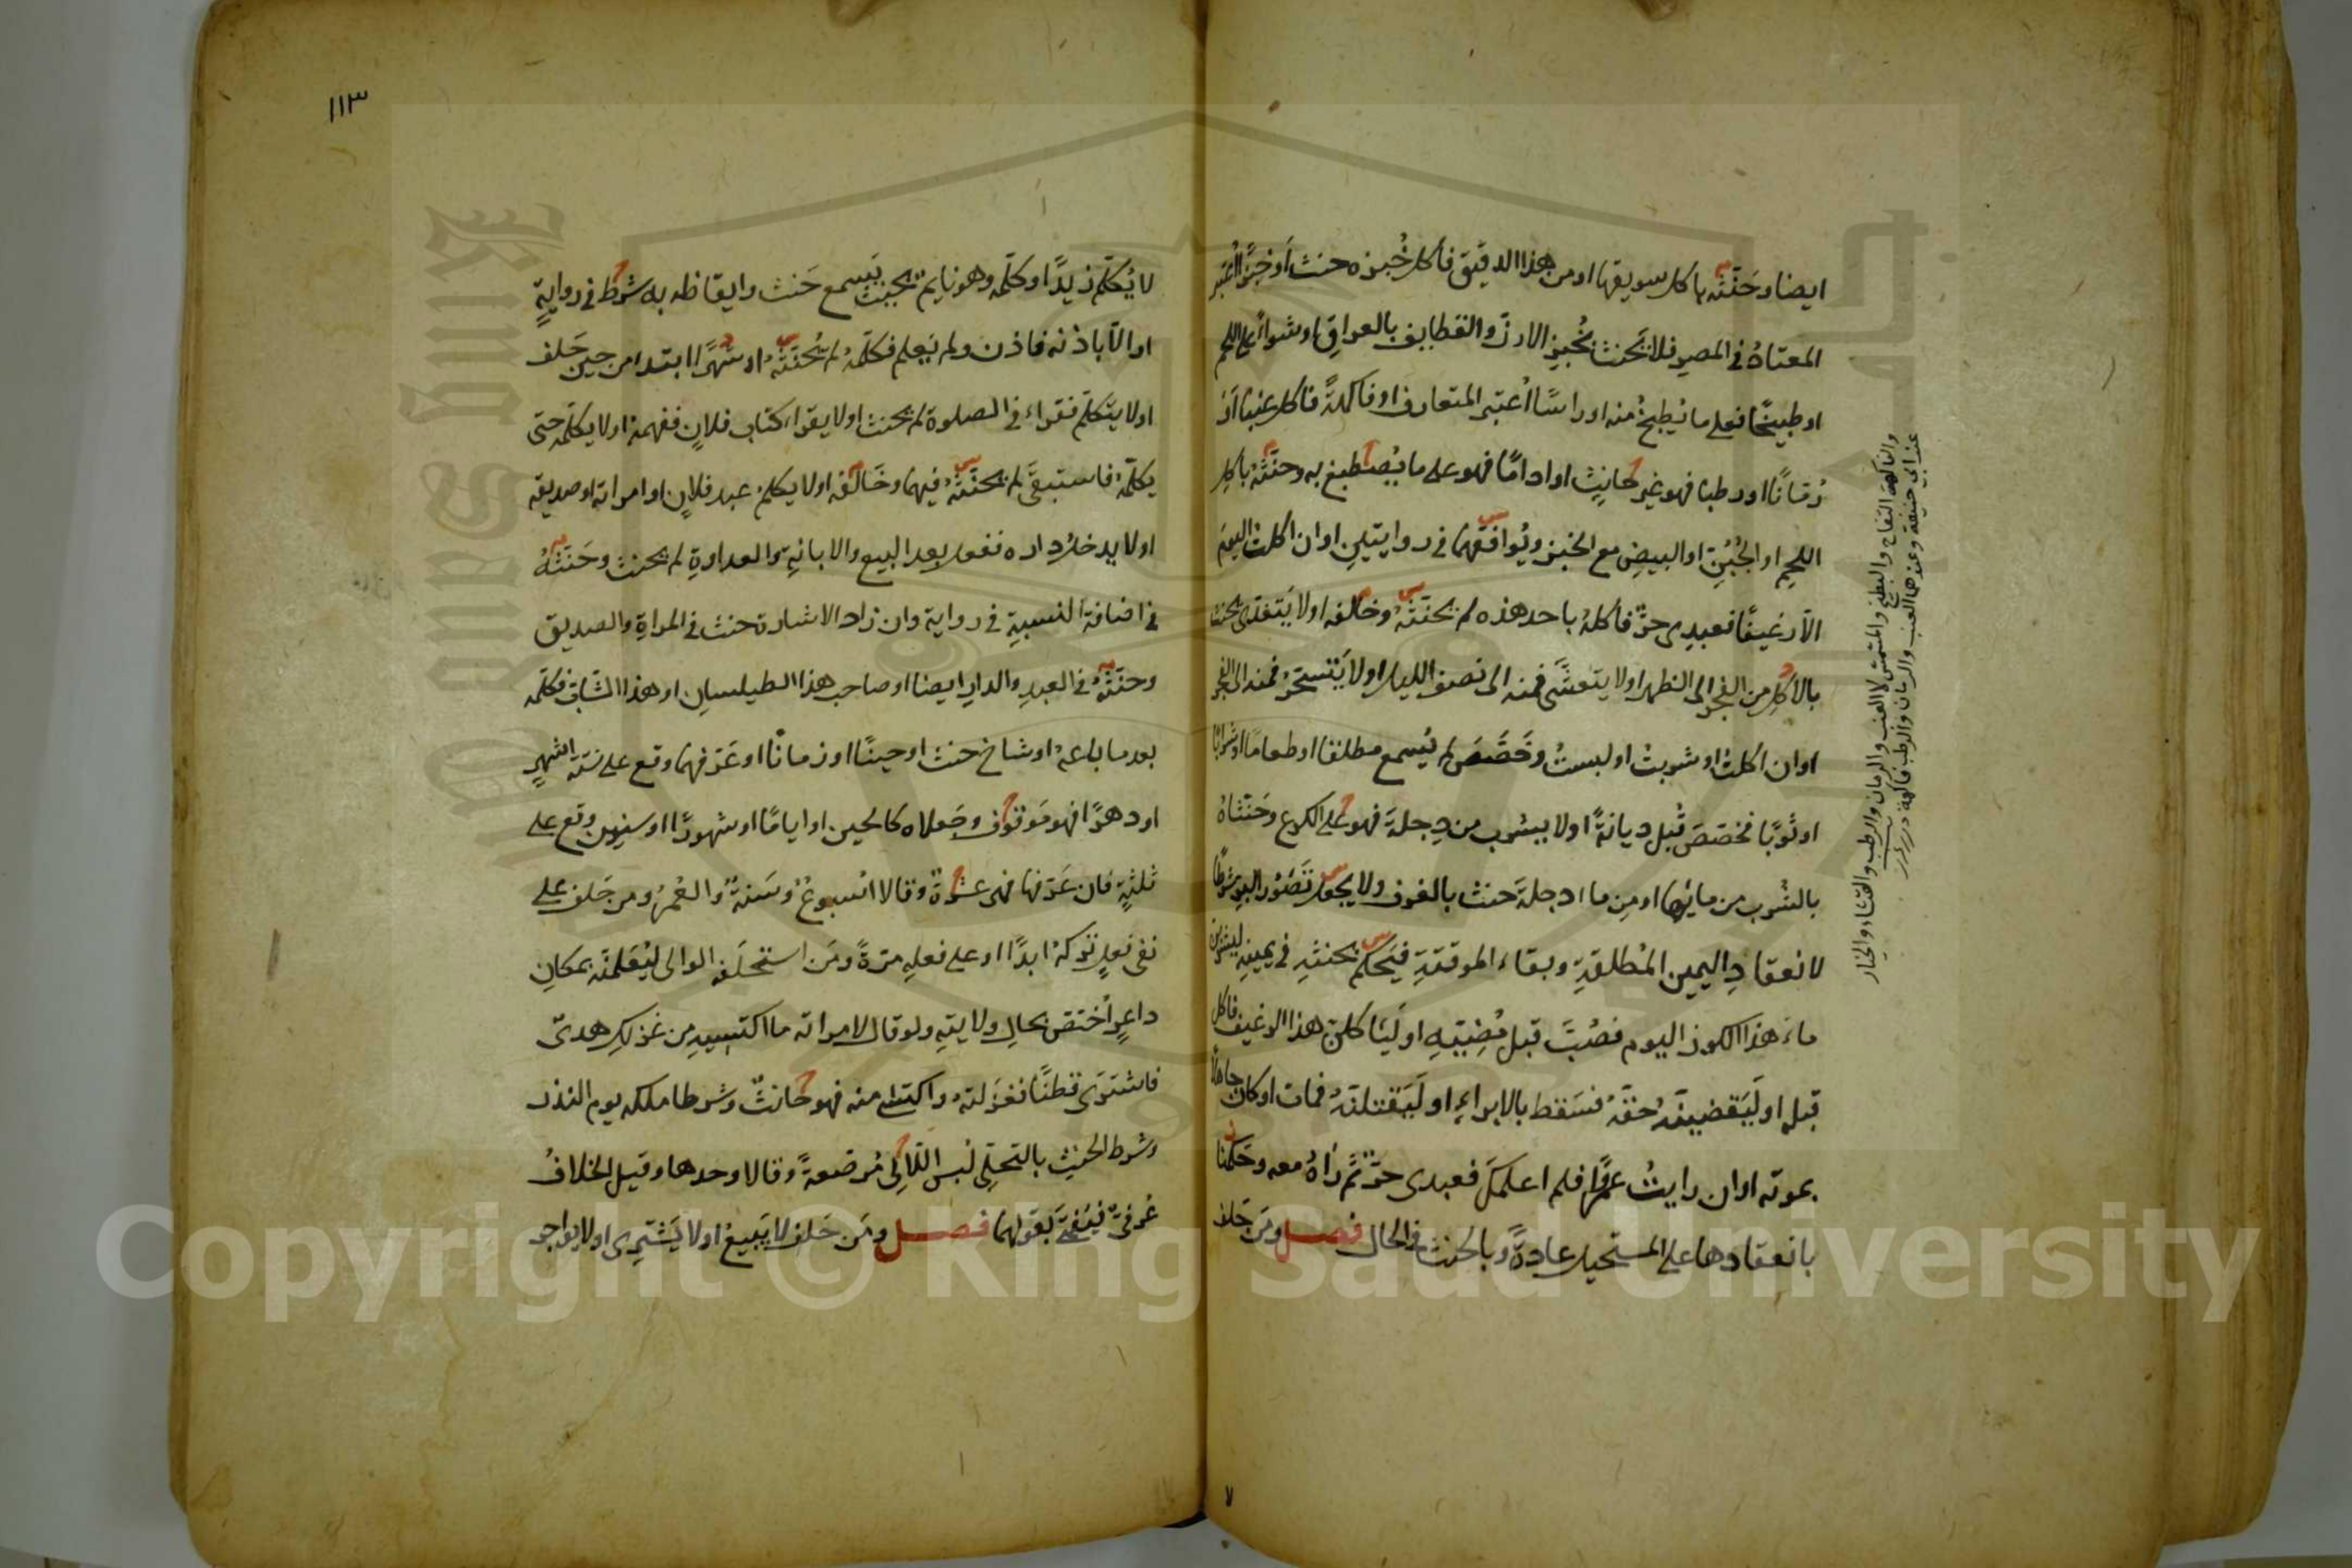 ايضا وحَنّثه باكل سويقها او من هذا الدقيق فأكل خُبزه حنث أو خبزًا اعتبر
المعتاد في المصر فلا يحنث بخُبز الارز والقطايف بالعراق او شواءً على اللحم
او طبيخًا فعلى ما يُطبخ منه او راسًا اُعتبر المتعارف او فاكهةً فاكل عنبا او
رُمّانًا او رطبا فهو غير حانثٍ او ادامًا فهو على ما يُصطبغ به وحنّثه باكل
اللحم او الجُبُنِ او البيض مع الخبز ويُوافقهما في روايتين او ان اكلت اليوم
الّا رغيفًا فعبدى حرّ فاكله باحد هذه لم يحنّثه وخالفه او لا يَتغدى يحنث
بالاكل من الفجر الى الظهر او لا يتعشّى فمنه الى نصف الليل او لا يتسحّر فمنه الى الفجر
او ان اكلتُ او شربتُ او لبستُ وخَصَّصَ لم يُسمع مطلقا او طعامًا او شرابًا
او ثوبًا فخصّص قُبل ديانةً او لا يشرب من دِجلة فهو على الكرع وحَنّثاهُ
بالشُرب من مائها او مِن ماء دجلة حنث بالغرف ولا يجعل تَصَوّر البِر شرطًا
لانعقادِ اليمين المُطلقةِ وبقاء الموقتةِ فيَحكم بحنثهِ في يمينه ليشربن
ماءَ هذا الكوز اليوم فصُبَّ قبل مُضِيّه او لَيَأكلن هذا الرغيف فأكل
قبله او لَيَقضينّه حقّه فسَقط بالابراءِ او لَيَقتلنّه فمات او كان جاهلًا
بموته او ان رايتُ عمرًا فلم اعلمك فعبدى حرّ ثمّ رَاهُ معه وحَكمنا
بانعقادها على المستحيل عادةً وبالحنث في الحال فصل ومَن حَلف
والفاكهة التفاح والبطيخ والمشمش لا العنب والرمان والرطب والقثاء والخيار
عند ابي حنيفة وعندهما العنب والرمان والرطب فاكهة درر
١١٣
لا يُكلّم زيدًا او كلّمه وهو نايم بحيث يَسمع حَنث وايقاظه به شرط في روايةٍ
او الّا باذنه فاذن ولم يَعلم فكلّمهُ لم يُحنّثهُ او شهرًا ابتدا من حين حَلف
او لا يتكلّم فقراء في الصلوة لم يحنث او لا يقرا كتاب فلانٍ ففهمهُ او لا يكلّمه حتى
يكلّمه فاستبقَى لم يحنّثهُ فيهما وخَالفه او لا يكلم عبد فلانٍ او امراته او صديقه
او لا يدخل داره ففعل بعد البيع والابانةِ والعداوةِ لم يحنث وحَنّثهُ
في اضافة النسبة في رواية وان زاد الاشارة حنث في المراةِ والصديق
وحنّثهُ في العبدِ والدارِ ايضا او صاحب هذا الطيلسان او هذا الشّابّ فكلّمه
بعد ما باعهُ او شاخ حنث او حينًا او زمانًا او عَرّفهما وقع على ستّة اشهرٍ
او دهرًا فهو مَوقوف وجَعلاه كالحين او ايامًا او شهورًا او سنين وقع على
ثلثةٍ فان عَرّفها فهى عشرةٌ وقالا اُسبوعٌ وسَنةٌ والعُمرُ ومن حَلف على
نفى فعلٍ تركهُ ابدًا او على فعلهِ مرةً ومَن استحلَفه الوالى ليُعلمنّه بمكانِ
داعرٍ اُختصّ بحالِ ولايتهِ ولو قال لامراته ما اكتسيهِ من غزلكِ هدىٌ
فاشتَرَى قطنًا فغزَلتهُ واكتسى منه فهو حانثٌ وشرطا ملكه يوم النذر
وشرط الحنث بالتحلِّى لُبس اللآلى مُرصعةً وقالا وحدها وقيل الخلافُ
عُرفىٌّ فيُفتَى بقولهما فصل ومَن حَلف لا يَبيعُ او لا يَشترى او لا يواجر